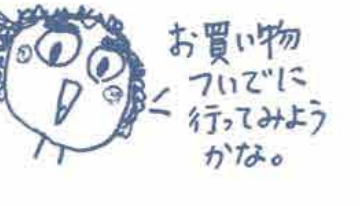 お買い物
ついでに
行ってみよう
かな。